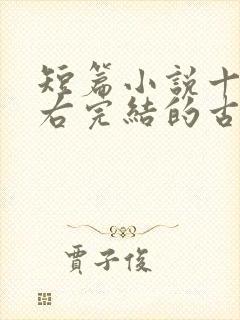 短篇小說十
右完結的古
賈子俊